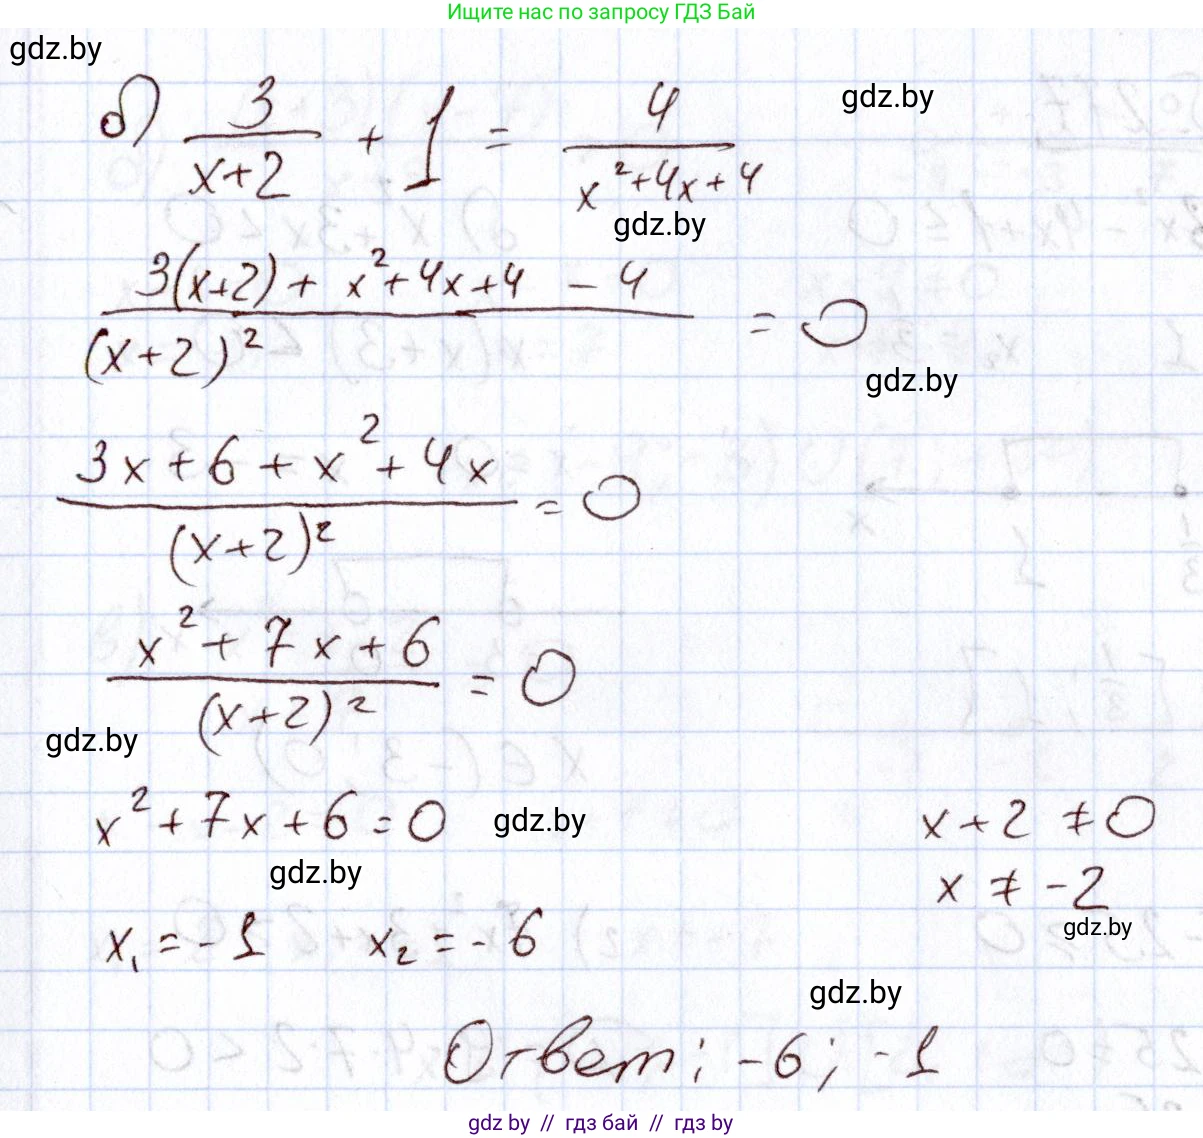 Ищите нас по запросу ГДЗ Бай
gdz.by
б) 3/(x+2) + 1 = 4/(x²+4x+4)
gdz.by
gdz.by
(3(x+2) + x²+4x+4 - 4)/(x+2)² = 0
gdz.by
(3x+6+x²+4x)/(x+2)² = 0
(x²+7x+6)/(x+2)² = 0
gdz.by
x²+7x+6=0 gdz.by x+2 ≠ 0
gdz.by x ≠ -2
gdz.by
x₁ = -1 x₂ = -6
gdz.by
Ответ: -6; -1
gdz.by // гдз бай // гдз by